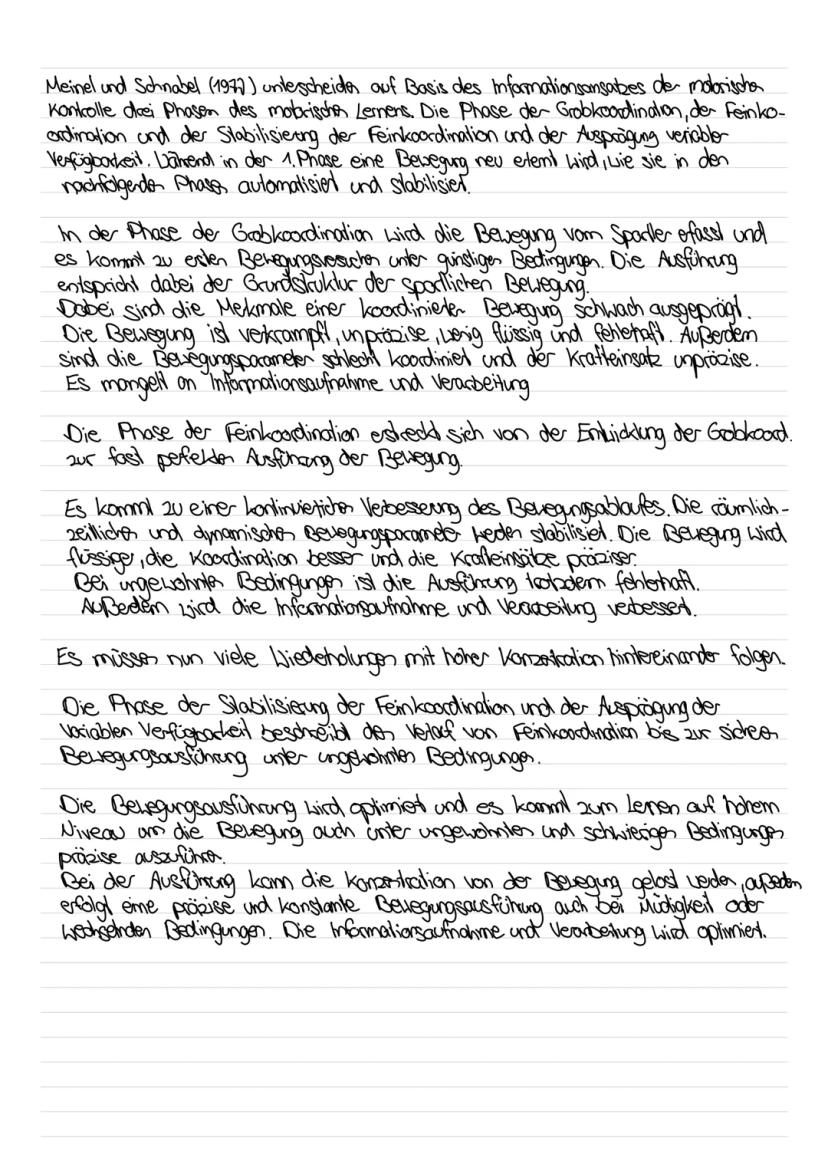 Meinel und Schnabel (1977) unterscheiden auf Basis des Informationsansatzes der motorischen
Kontrolle drei Phasen des motorischen Lernens. Die Phase der Grobkoordination, der Feinko-
ordination und der Stabilisierung der Feinkoordination und der Ausprägung variabler
Verfügbarkeit. Während in der 1. Phase eine Bewegung neu erlernt wird, wie sie in den
nachfolgenden Phasen automatisiert und stabilisiert.
In der Phase der Grobkoordination wird die Bewegung vom Sportler erfasst und
es kommt zu ersten Bewegungsversuchen unter günstigen Bedingungen. Die Ausführung
entspricht dabei der Grundstruktur der sportlichen Bewegung.
Dabei sind die Merkmale einer koordinierten Bewegung schwach ausgeprägt.
Die Bewegung ist verkrampft, unpräzise, wenig flüssig und fehlerhaft. Außerdem
sind die Bewegungsparameter schlecht koordiniert und der Krafteinsatz unpräzise.
Es mangelt an Informationsaufnahme und Verarbeitung
Die Phase der Feinkoordination erstreckt sich von der Entwicklung der Grobkoord.
zur fast perfekten Ausführung der Bewegung.
Es kommt zu einer kontinuierlichen Verbesserung des Bewegungsablaufes. Die räumlich-
zeitlichen und dynamischen Bewegungsparameter werden stabilisiert. Die Bewegung wird
flüssiger, die Koordination besser und die Krafteinsätze präziser.
Bei ungewohnten Bedingungen ist die Ausführung trotzdem fehlerhaft.
Außerdem wird die Informationsaufnahme und Verarbeitung verbessert.
Es müssen nun viele Wiederholungen mit hoher Konzentration hintereinander folgen.
Die Phase der Stabilisierung der Feinkoordination und der Ausprägung der
Variablen Verfügbarkeit beschreibt den Verlauf von Feinkoordination bis zur sicheren
Bewegungsausführung unter ungewohnten Bedingungen.
Die Bewegungsausführung wird optimiert und es kommt zum Lernen auf hohem
Niveau um die Bewegung auch unter ungewohnten und schwierigen Bedingungen
präzise auszuführen.
Bei der Ausführung kann die Konzentration von der Bewegung gelöst werden, außerdem
erfolgt eine präzise und konstante Bewegungsausführung auch bei Müdigkeit oder
wechselnden Bedingungen. Die Informationsaufnahme und Verarbeitung wird optimiert.